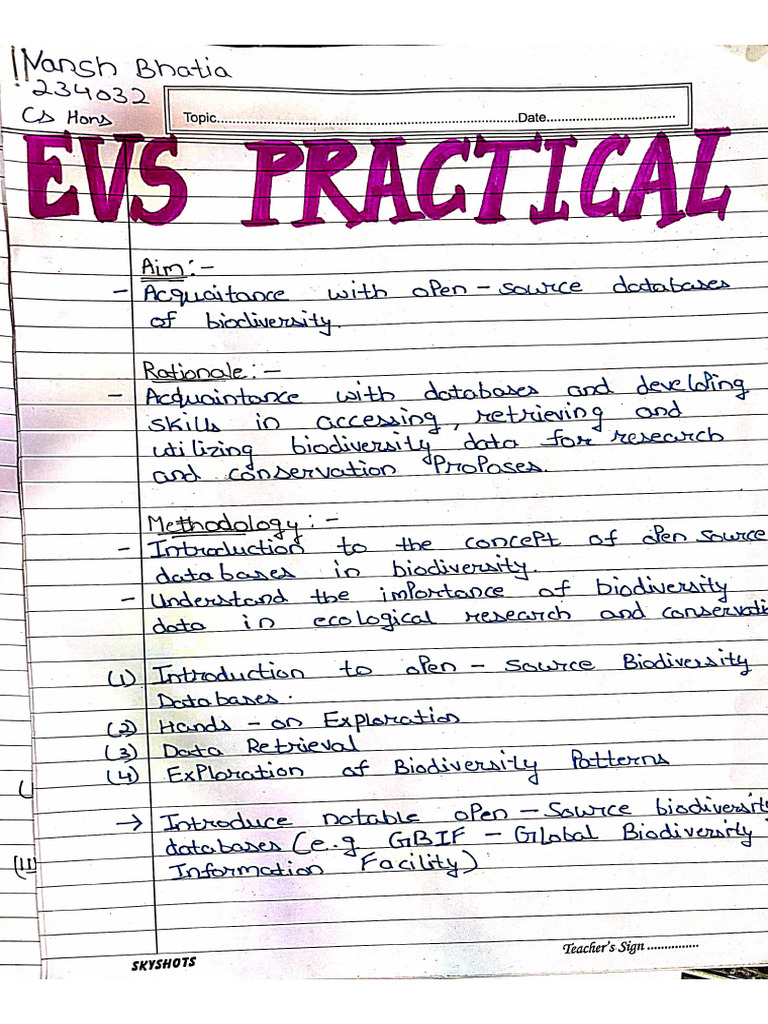 Vansh Bhatia
234032
CS Hons
Topic..........Date..........
EVS PRACTICAL
Aim:-
- Acquaitance with open-source databases
of biodiversity.
Rationale:-
- Acquaintance with databases and developing
skills in accessing, retrieving and
utilizing biodiversity data for research
and conservation Proposes.
Methodology:-
- Introduction to the concept of open source
databases in biodiversity.
- Understand the importance of biodiversity
data in ecological research and conservati
(1) Introduction to open-source Biodiversity
Databases.
(2) Hands-on Exploration
(3) Data Retrieval
(4) Exploration of Biodiversity Patterns
→ Introduce notable open-source biodiversity
databases (e.g GBIF - Global Biodiversity
Information Facility)
Teacher's Sign ...............
SKYSHOTS